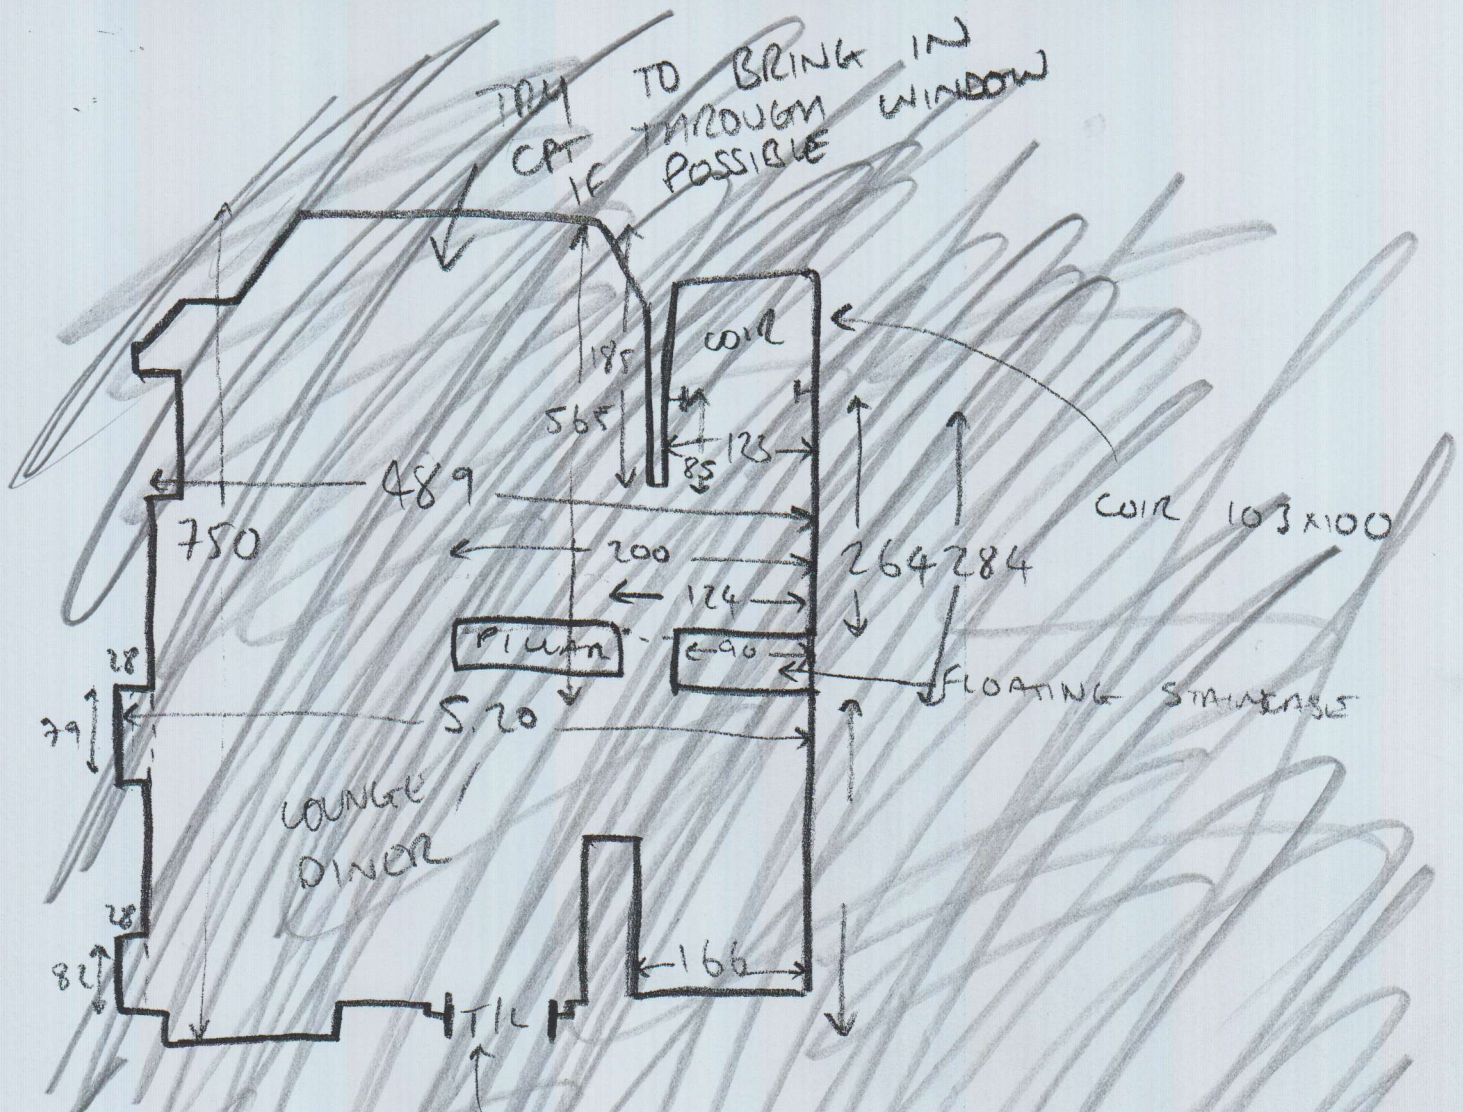 TRY TO BRING IN
CPT THROUGH WINDOW
IF POSSIBLE
COIR
185
565
123
85
489
COIR 103x100
750
200
264 284
124
PILLAR
90
28
FLOATING STAIRCASE
79
5.20
LOUNGE/
DINER
28
82
166
T/L